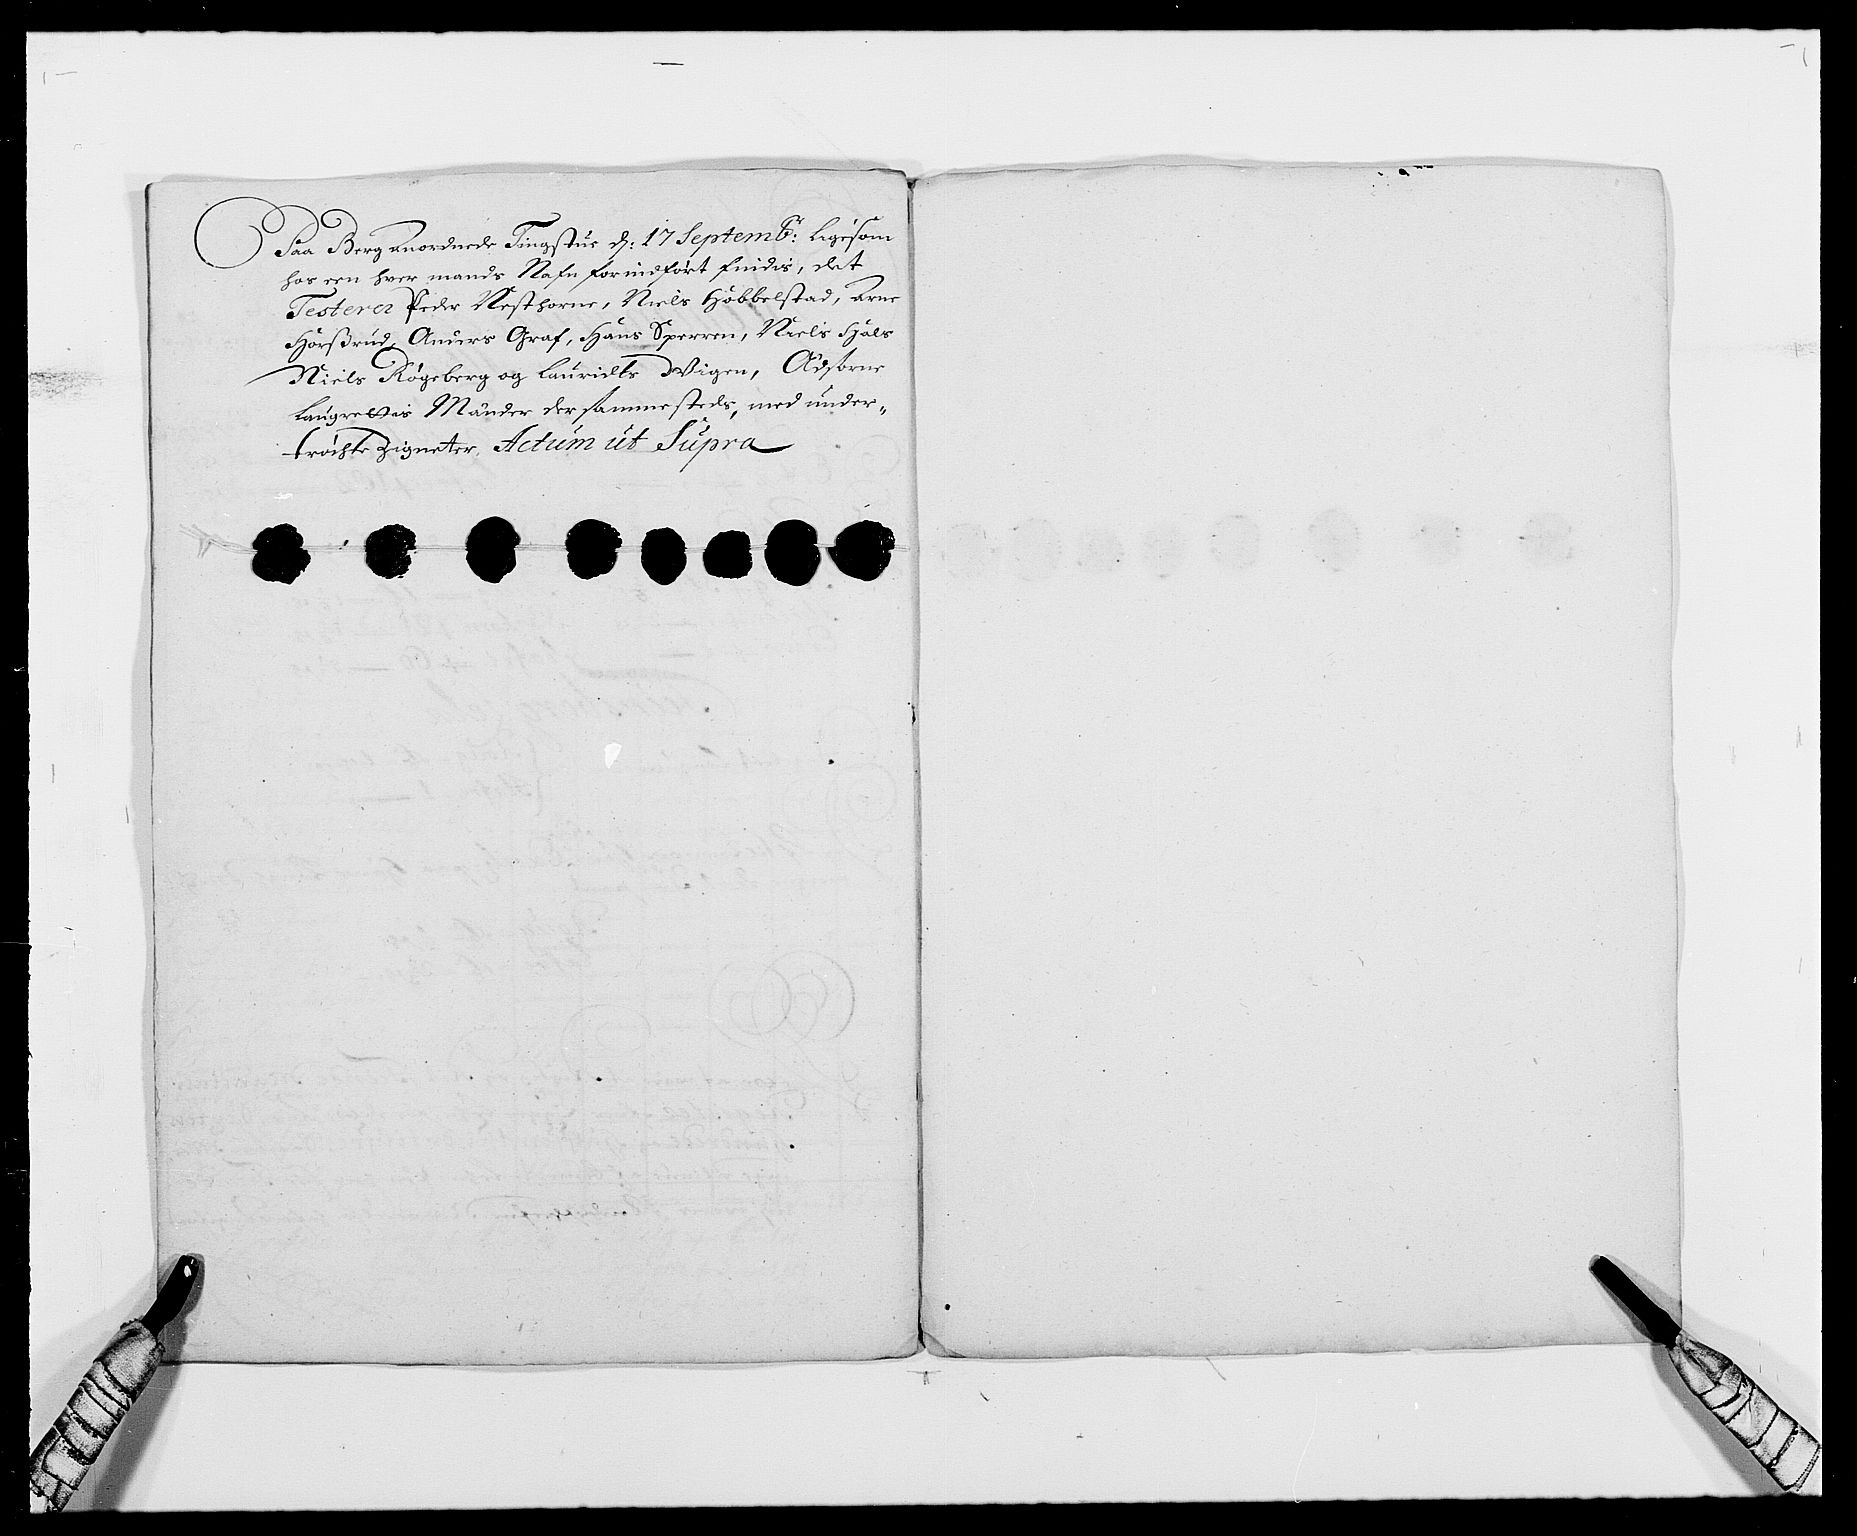 Paa Berg anordnede Tingstue d: 17 Septembr: ligesom
hos een hver mands Nafn forindført findis, det
Testerer Peder Nesthorne, Niels Høbbelstad, Arne
Horßrud, Anders Graf, Hans Sperren, Niels Hiåls
Niels Røgeberg og Lauridts Wigen, Edsorne
Laugrettis Mænder der sammesteds, med under„
trøchte Zigneter. Actum ut Supra